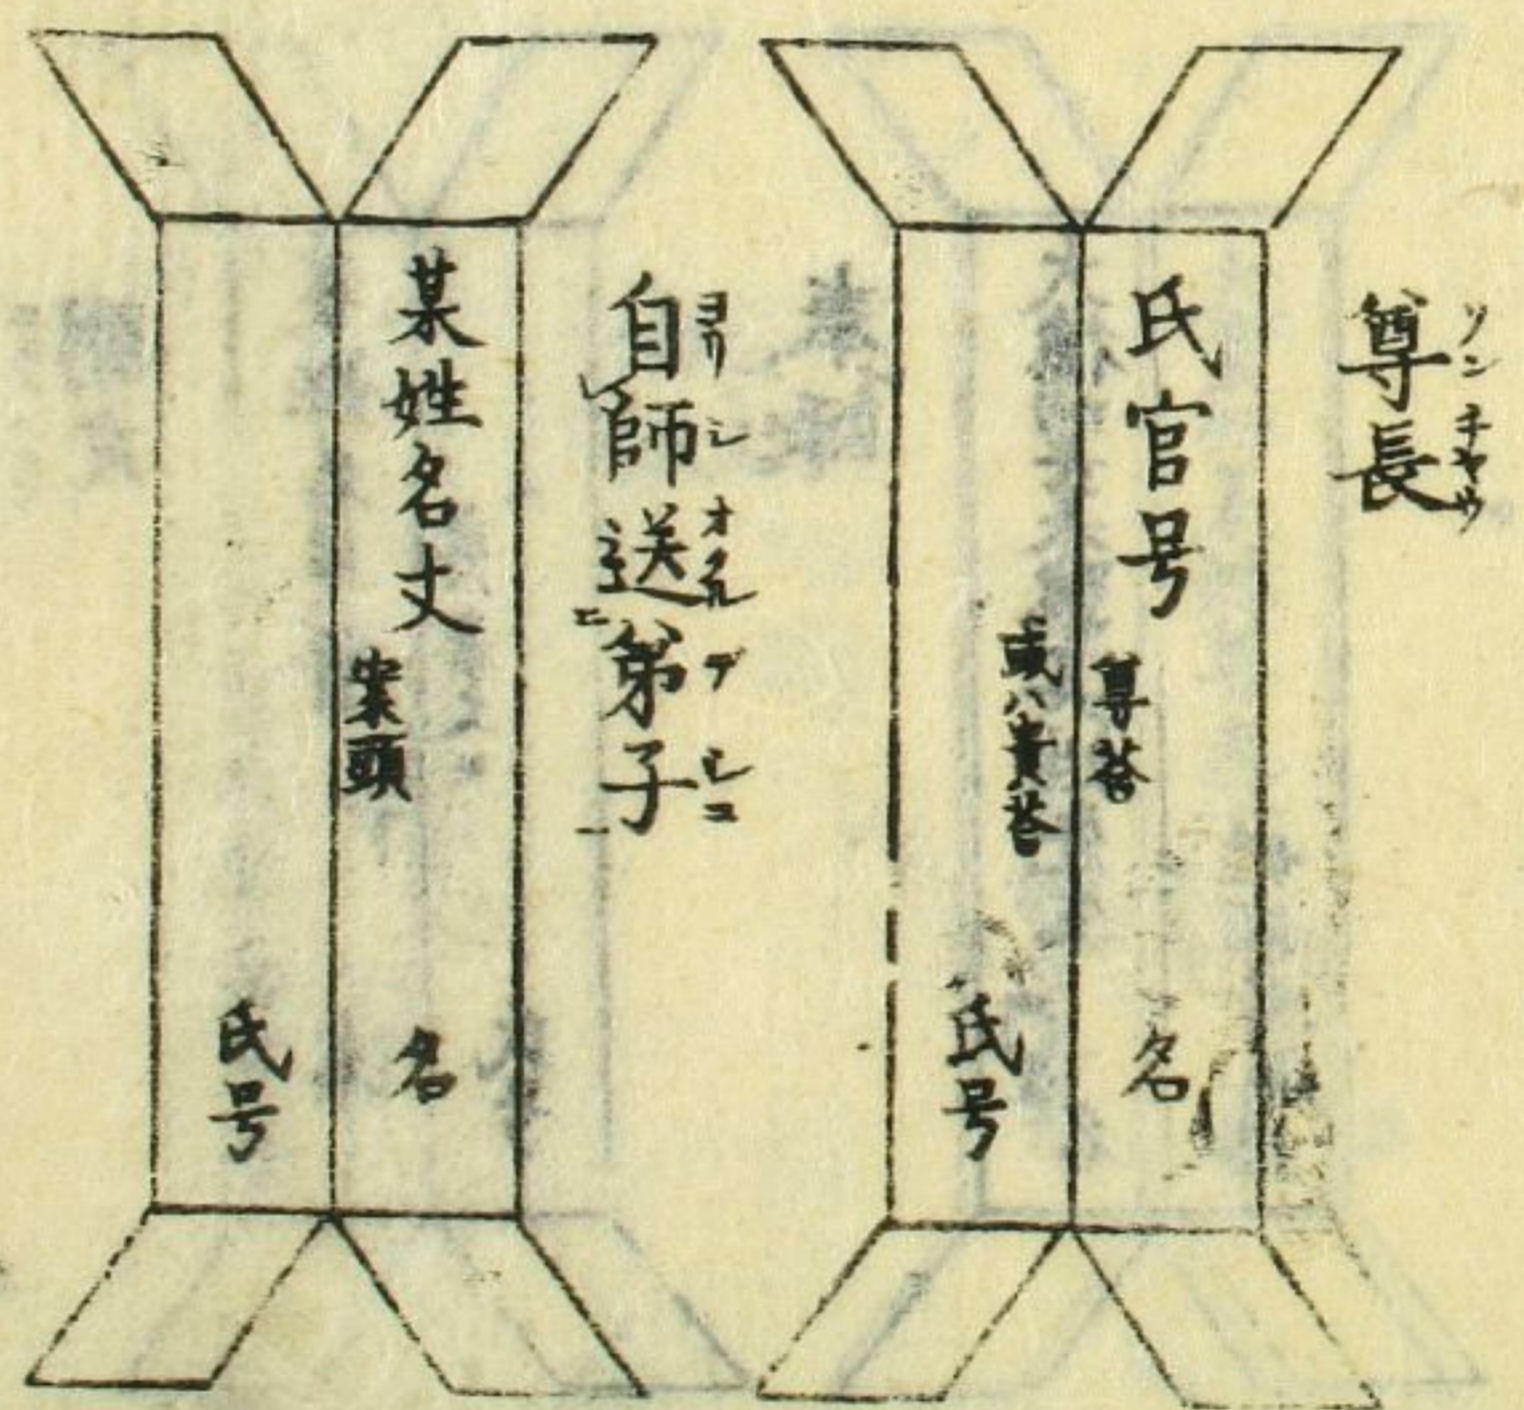 尊長
ソンチヤウ
氏官号
尊答
名
或ハ貴答
氏号
自師送弟子
ヨリシオクルデシニ
某姓名丈
案頭
名
氏号